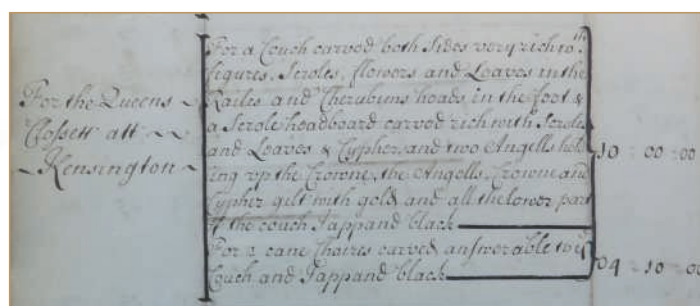 For the Queens
Clossett att
Kensington
For a Couch carved both Sides very rich wth.
figures, Scroles, flowers and Leaves in the
Railes and Cherubims heads in the foot &
a Scrole headboard carved rich with Scroles
and Leaves & Cypher, and two Angells hold
ing up the Crowne, the Angells, Crowne and
Cypher gilt with gold and all the lower part
of the couch Jappand black
10 - 00 - 00
For 2 cane Chaires carved answerable to ye
Couch and Jappand black
04 - 10 - 00